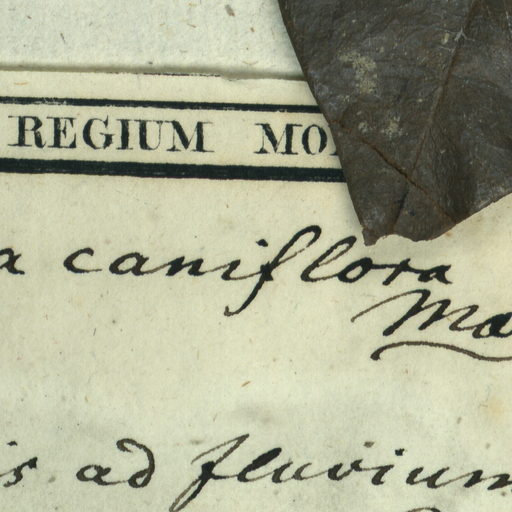 REGIUM MO
a caniflora
Ma
is ad fluvium